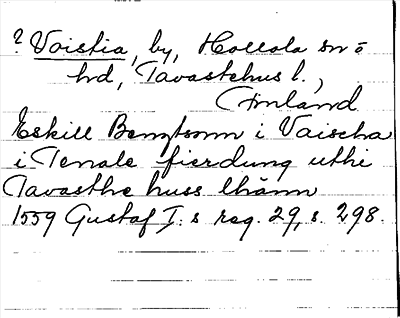 ? Voistia, by, Hollola sn ō
hd, Tavastehus l.,
Finland
Eskill Bemgtsonn i Vaischa
i Tenale fierdung uthi
Tavasthe huss lhänn
1559 Gustaf I:s reg. 29, s. 298.